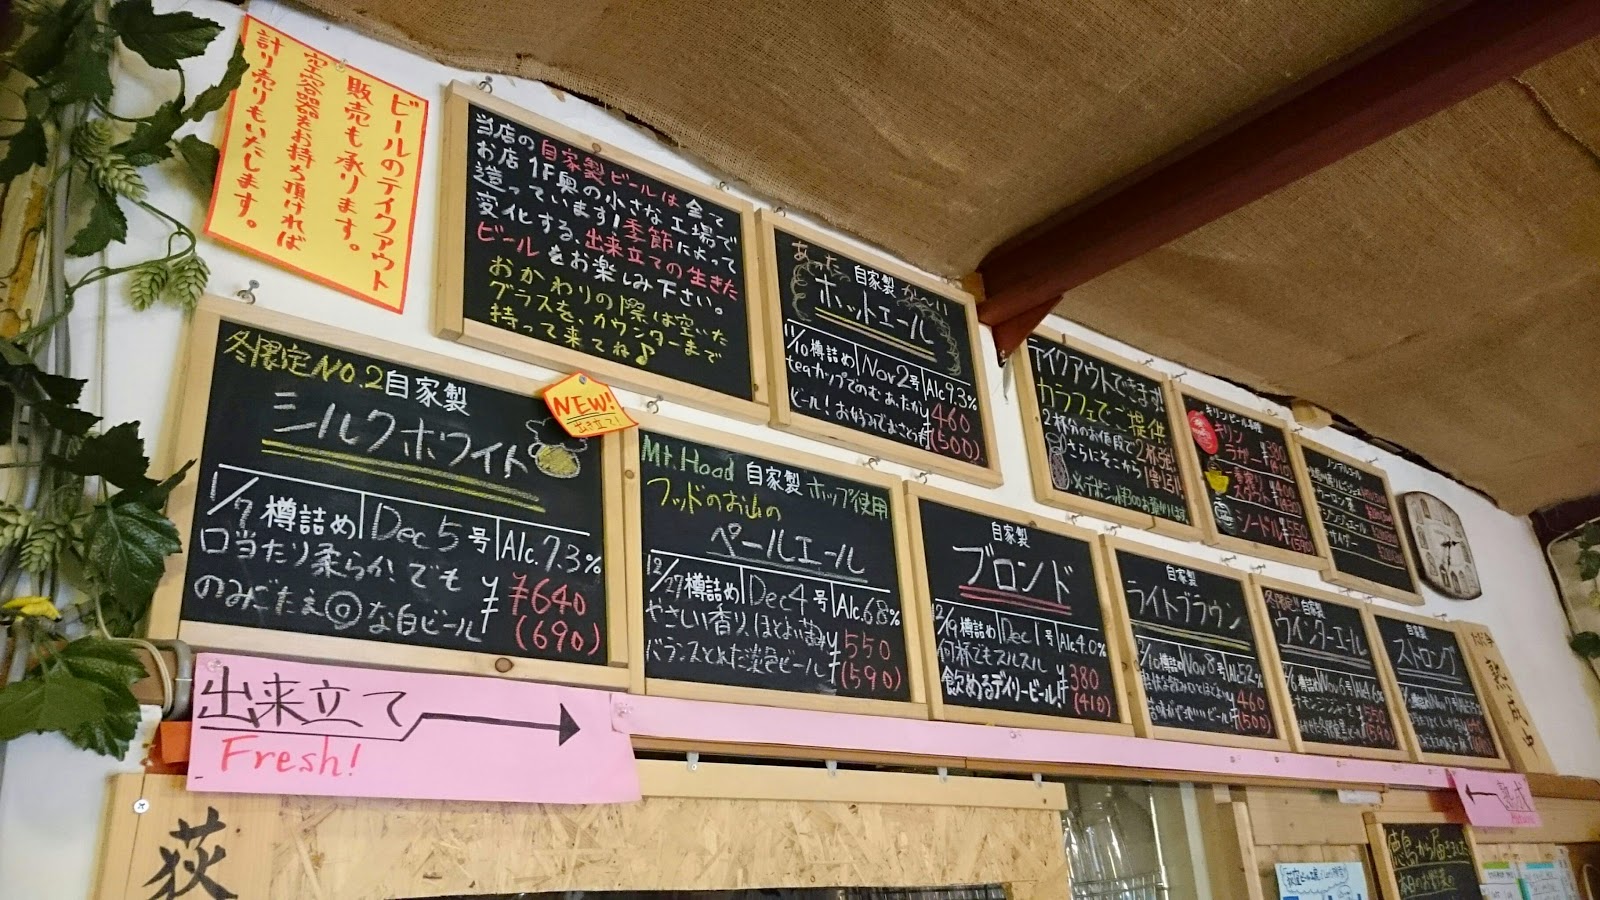 ビールのテイクアウト
販売も承ります。
空容器をお持ち頂ければ
計り売りもいたします。
当店の自家製ビールは全て
お店1F奥の小さな工場で
造っています!季節によって
変化する、出来立ての生きた
ビールをお楽しみ下さい。
おかわりの際は空いた
グラスを、カウンターまで
持って来てね♪
あったか〜い
自家製
ホットエール
11/10樽詰め Nov2号 Alc9.3%
teaカップでのむあたたかい
ビール!お好みでおさとうを
¥460
(500)
テイクアウトできます!
カラフェでご提供
2杯分のお値段で2杯強!
さらにそこから1割引!
キリン
ラガー
¥380
スタウト
シードル
¥550
(590)
ノンアルコール
冬限定NO.2 自家製
ミルクホワイト
NEW!
出来立て!
1/7樽詰め Dec5号 Alc.7.3%
口当たり柔らか!でも
のみごたえ◎な白ビール
¥640
(690)
Mt.Hood 自家製 ホップ使用
フッドのお山の
ペールエール
12/27樽詰め Dec4号 Alc6.8%
やさしい香り、ほどよい苦み
バランスとれた淡色ビール
¥550
(590)
自家製
ブロンド
12/19樽詰め Dec1号 Alc4.0%
何杯でもスルスル
飲めるデイリービール!
¥380
(410)
自家製
ライトブラウン
12/10樽詰め Nov8号 Alc5.2%
¥460
(500)
冬限定!! 自家製
ウインターエール
Nov6号
¥550
(590)
自家製
ストロング
熟成中
出来立て
Fresh!
熟成
荻
徳島から届きました
本日のお野菜の